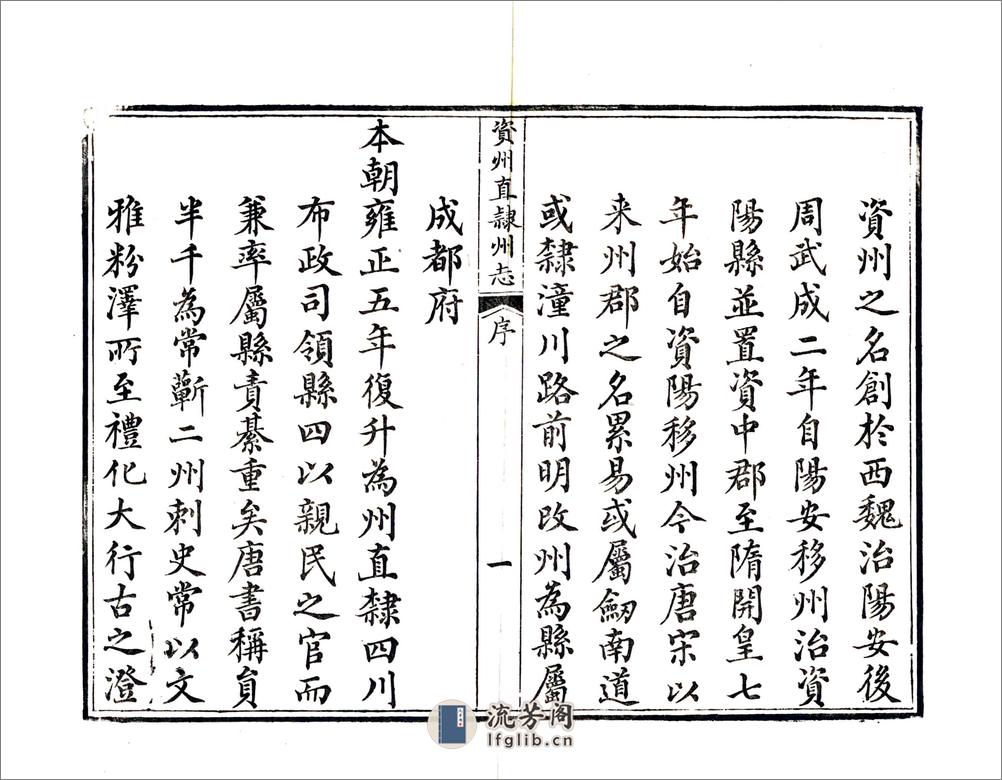 資州之名創於西魏治陽安後
周武成二年自陽安移州治資
陽縣並置資中郡至隋開皇七
年始自資陽移州今治唐宋以
来州郡之名累易或屬劒南道
或隸潼川路前明改州為縣屬
資州直隸州志
序
一
成都府
本朝雍正五年復升為州直隸四川
布政司領縣四以親民之官而
兼率屬縣責綦重矣唐書稱負
半千為常蘄二州刺史常以文
雅粉澤所至禮化大行古之澄
流芳阁
lfglib.cn